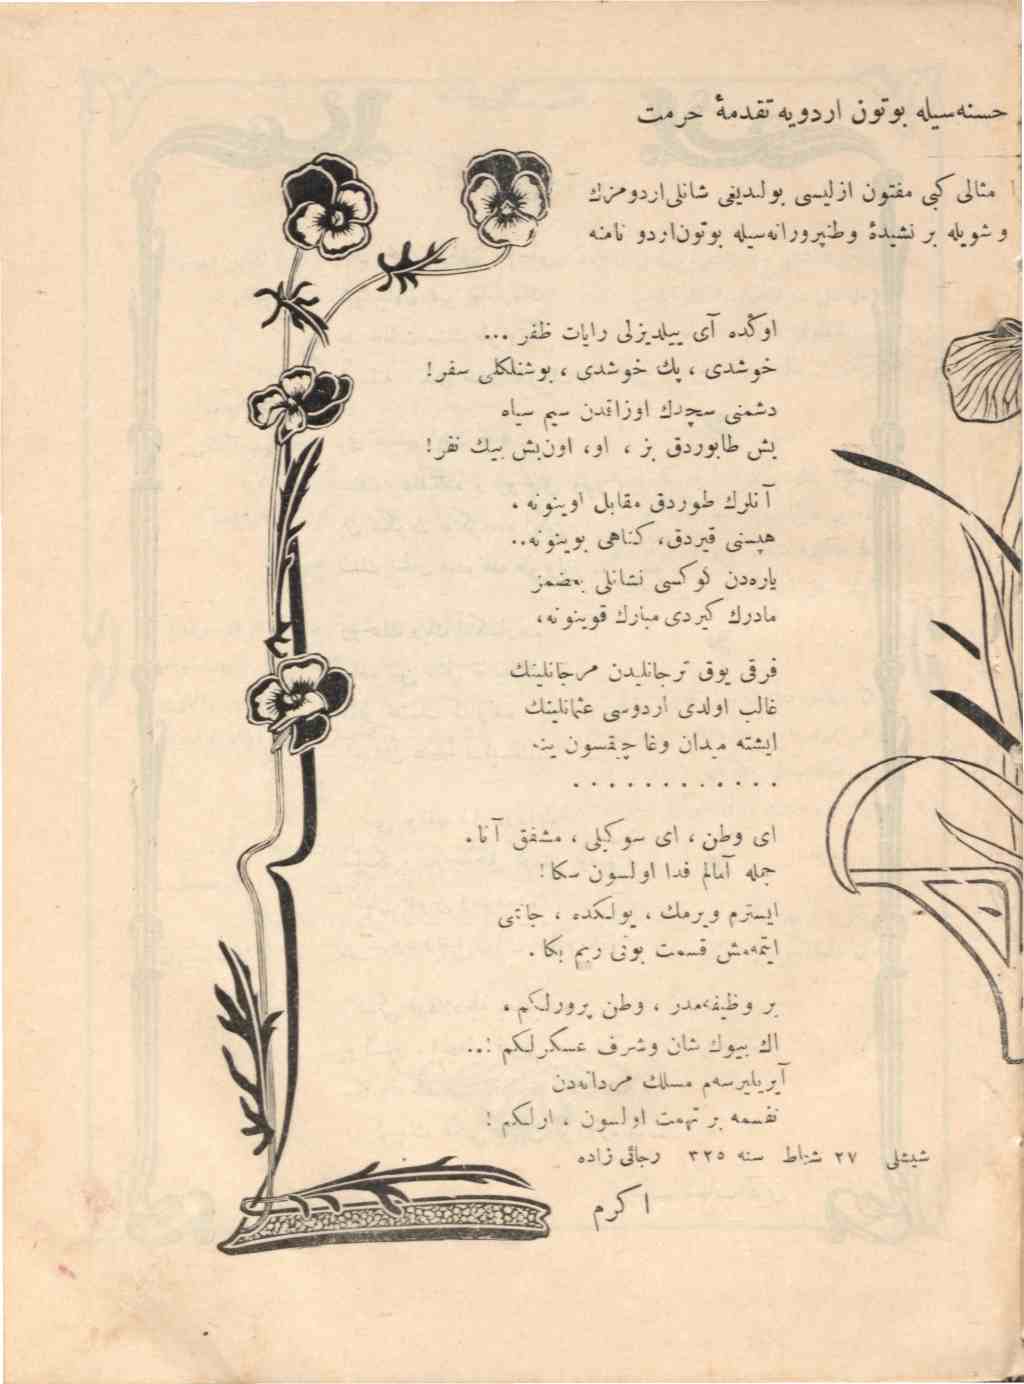 حسنه‌سیله بوتون اردویه تقدمۀ حرمت
مثالی کبی مفتون ازلیسی بولندیغی شانلی‌اردومزك
و شویله بر نشیدۀ وطنپرورانه‌سیله بوتون‌اردو نامنه
اوڭده آی ییلدیزلی رایات ظفر ...
خوشدی ، پك خوشدی ، بوشنلكلی سفر!
دشمنی سچدك اوزاقدن سیم سیاه
بش طابوردق بز ، او، اون‌بش بیك نفر!
آنلرك طوردق مقابل اوینونه ،
هپسنی قیردق، كناهی بوینونه..
یاره‌دن كوكسی نشانلی بعضمز
مادرك كیردی مبارك قوینونه،
فرقی یوق ترجانلیدن مرجانلینك
غالب اولدی اردوسی عثمانلینك
ایشته میدان وغا چیقسون ینه
. . . . . . . . . . . .
ای وطن ، ای سوكیلی ، مشفق آنا.
جمله آمالم فدا اولسون سكا!
ایسترم ویرمك ، یولكده ، جانمی
ایتمه‌مش قسمت بونی ربم بكا.
بر وظیفه‌مدر ، وطن پرورلكم ،
اك بیوك شان وشرف عسكرلكم !..
آیریلیرسه‌م مسلك مردانه‌دن
نفسمه بر تهمت اولسون ، ارلكم !
شیشلی ۲۷ شباط سنه ۳۲۵ رجائی زاده
اكرم